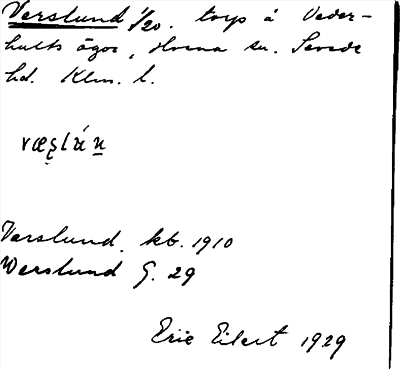 Verslund 1/20. torp å Veder-
hults ägor, Horna sn. Sevede
hd. Klm. l.
væʂlún
Varslund, kb. 1910
Werslund G. 29
Eric Eilert 1929